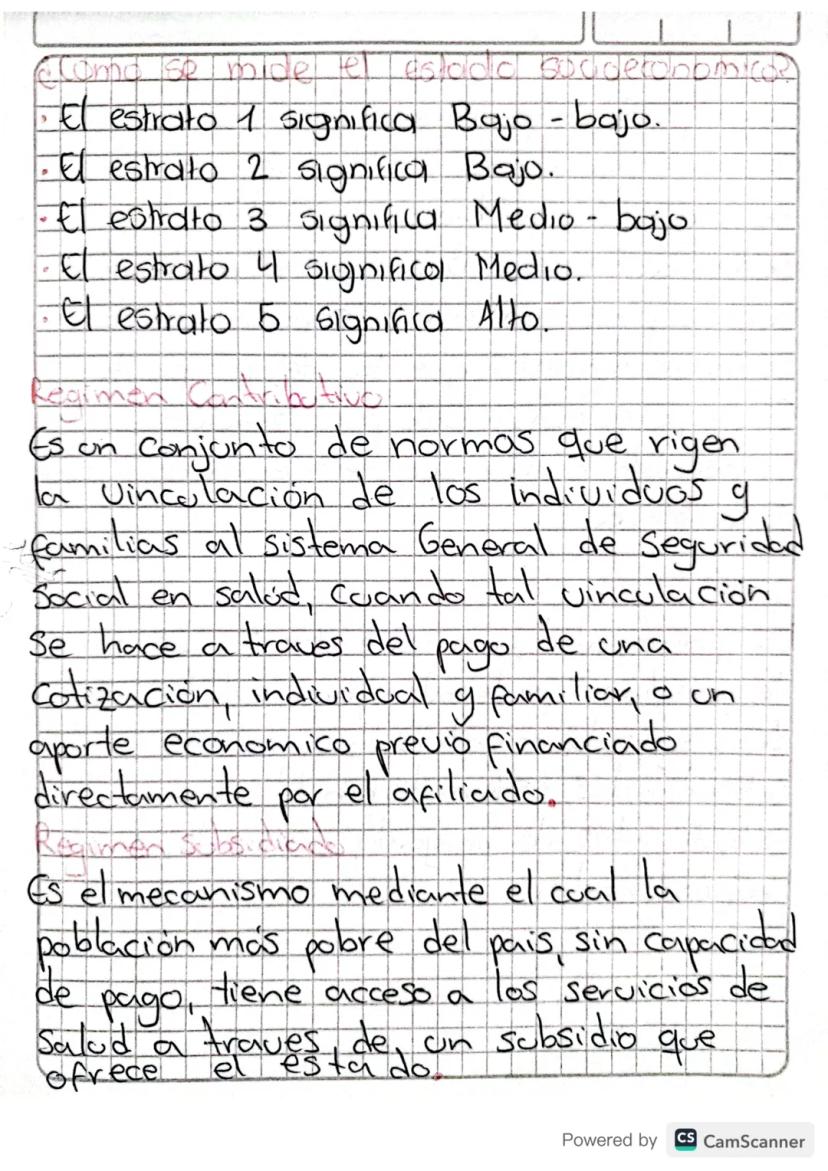 ¿Como se mide el estado socioeconomico?
· El estrato 1 significa Bajo - bajo.
· El estrato 2 significa Bajo.
· El estrato 3 significa Medio - bajo
· El estrato 4 significa Medio.
· El estrato 5 significa Alto.
Regimen Contributivo
Es un conjunto de normas que rigen
la vinculación de los individuos y
familias al sistema General de Seguridad
Social en salud, cuando tal vinculación
se hace a traves del pago de una
cotización, individual y familiar, o un
aporte economico previo financiado
directamente por el afiliado.
Regimen Subsidiado
Es el mecanismo mediante el cual la
población más pobre del pais, sin capacidad
de pago, tiene acceso a los servicios de
Salud a traves de un subsidio que
ofrece el estado.
Powered by CS CamScanner